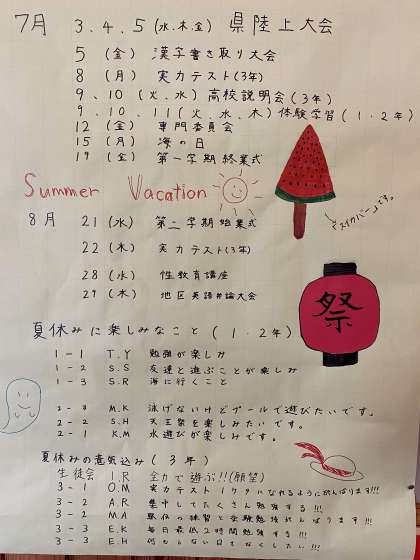 7月 3.4.5(水.木.金) 県陸上大会
5 (金) 漢字書き取り大会
8 (月) 実力テスト(3年)
9、10 (火、水) 高校説明会(3年)
9、10、11(火、水、木)体験学習(1・2年)
12 (金) 専門委員会
15 (月) 海の日
19 (金) 第一学期終業式
Summer Vacation
「スイカバー」です。
8月 21(水) 第二学期始業式
22(木) 実力テスト(3年)
28(水) 性教育講座
29(木) 地区英語弁論大会
祭
夏休みに楽しみなこと(1・2年)
1-1 T.Y 勉強が楽しみ
1-2 S.S 友達と遊ぶことが楽しみ
1-3 S.R 海に行くこと
2-3 M.K 泳げないけどプールで遊びたいです。
2-2 S.H 天王祭を楽しみたいです。
2-1 K.M 水遊びが楽しみです。
夏休みの意気込み(3年)
生徒会 I.R 全力で遊ぶ!!(願望)
3-1 O.M 実力テスト1ケタになれるようにがんばります!!!
3-2 A.R 集中してたくさん勉強する!!!
3-2 M.A の練習と受験勉強がんばります!!!
3-3 E.K 毎日最低2時間勉強する!!!
3-3 E.H